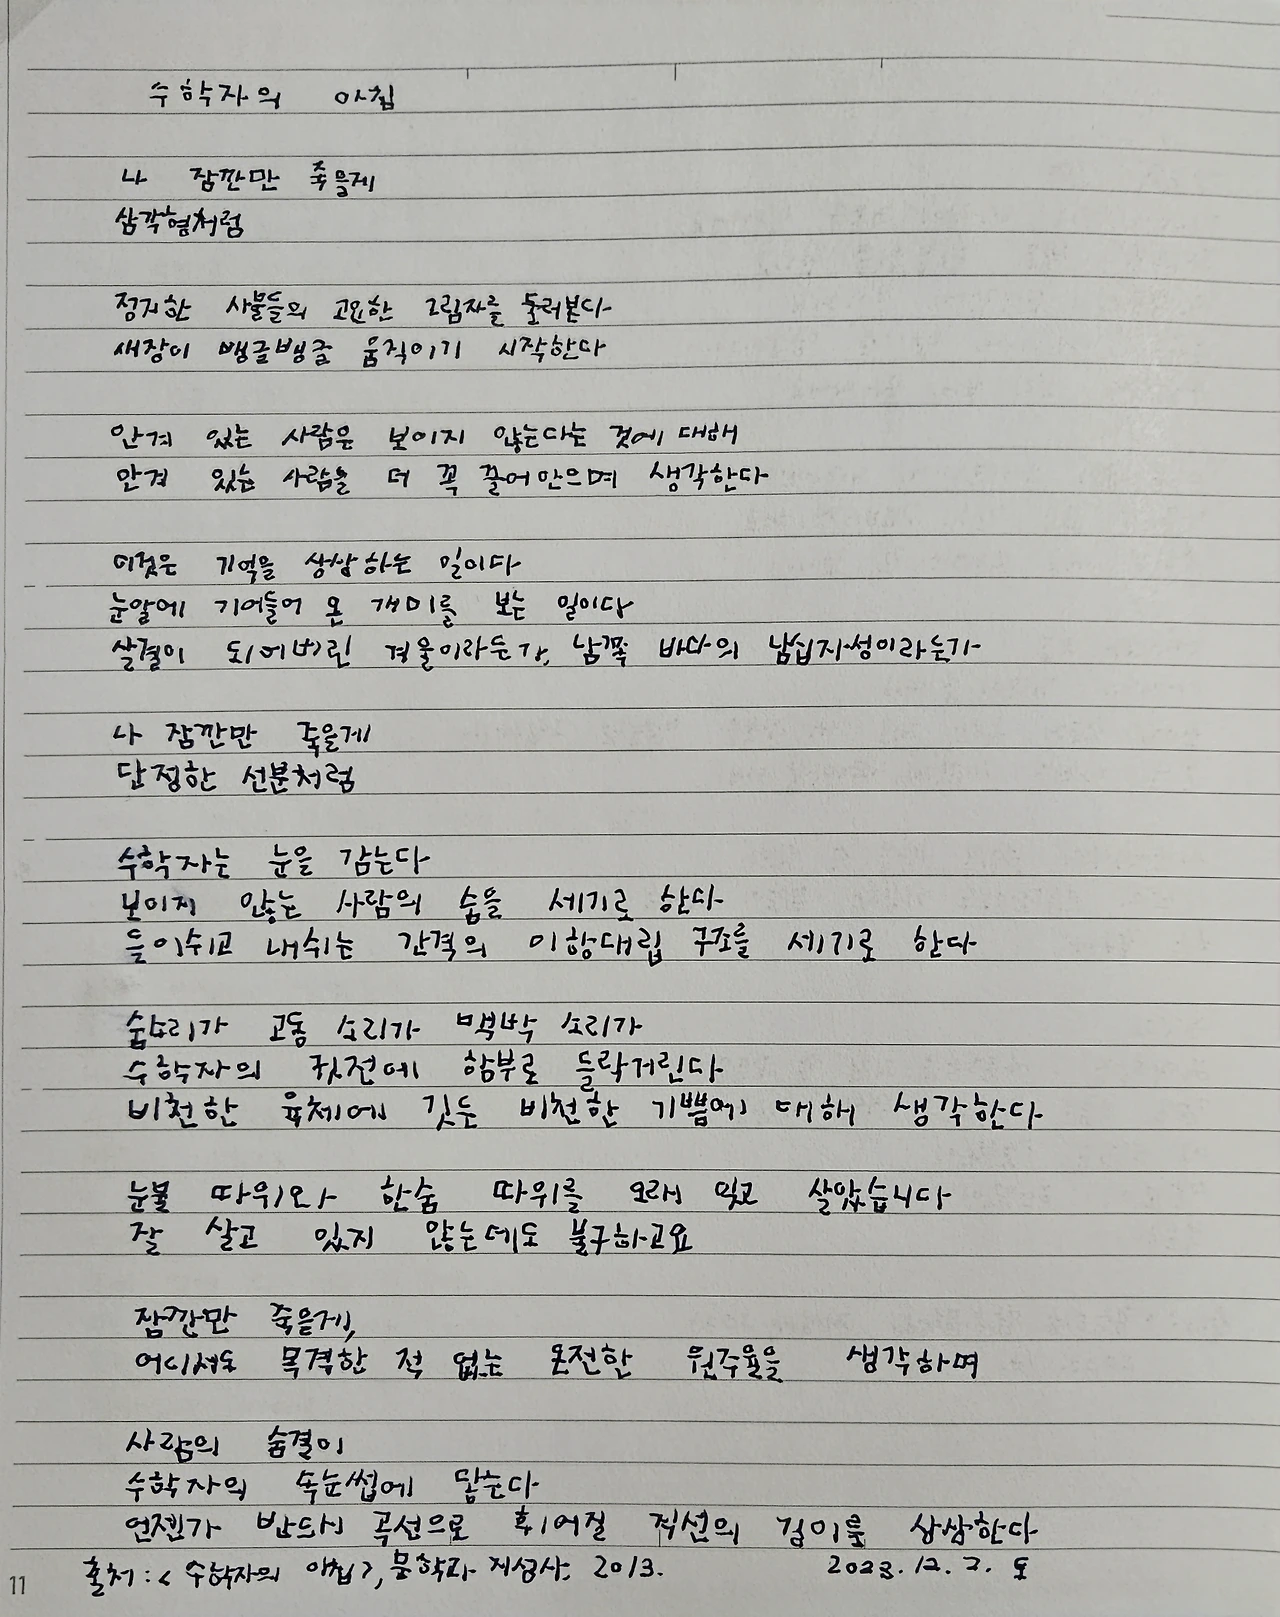 수학자의 아침
나 잠깐만 죽을게
삼각형처럼
정지한 사물들의 고요한 그림자를 둘러본다
새장이 뱅글뱅글 움직이기 시작한다
안겨 있는 사람은 보이지 않는다는 것에 대해
안겨 있는 사람을 더 꼭 끌어안으며 생각한다
이것은 기억을 상상하는 일이다
눈알에 기어들어 온 개미를 보는 일이다
살결이 되어버린 겨울이라든가, 남쪽 바다의 남십자성이라든가
나 잠깐만 죽을게
단정한 선분처럼
수학자는 눈을 감는다
보이지 않는 사람의 숨을 세기로 한다
들이쉬고 내쉬는 간격의 이항대립 구조를 세기로 한다
숨소리가 고동 소리가 맥박 소리가
수학자의 귓전에 함부로 들락거린다
비천한 육체에 깃든 비천한 기쁨에 대해 생각한다
눈물 따위와 한숨 따위를 오래 잊고 살았습니다
잘 살고 있지 않는데도 불구하고요
잠깐만 죽을게,
어디서도 목격한 적 없는 온전한 원주율을 생각하며
사람의 숨결이
수학자의 속눈썹에 닿는다
언젠가 반드시 곡선으로 휘어질 직선의 길이를 상상한다
출처 : < 수학자의 아침 >, 문학과 지성사, 2013. 2023. 12. 2. 토
11